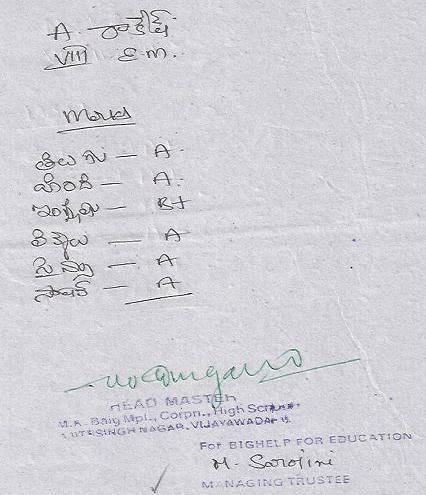 A. రాకేష్
VIII E.M.
Marks
తెలుగు — A
హిందీ — A
ఇంగ్లీషు — B+
లెక్కలు — A
సైన్సు — A
సోషల్ — A
HEAD MASTER
M.K. Baig Mpl., Corpn., High School,
SINGH NAGAR, VIJAYAWADA-15.
For BIGHELP FOR EDUCATION
M. Sarojini
MANAGING TRUSTEE